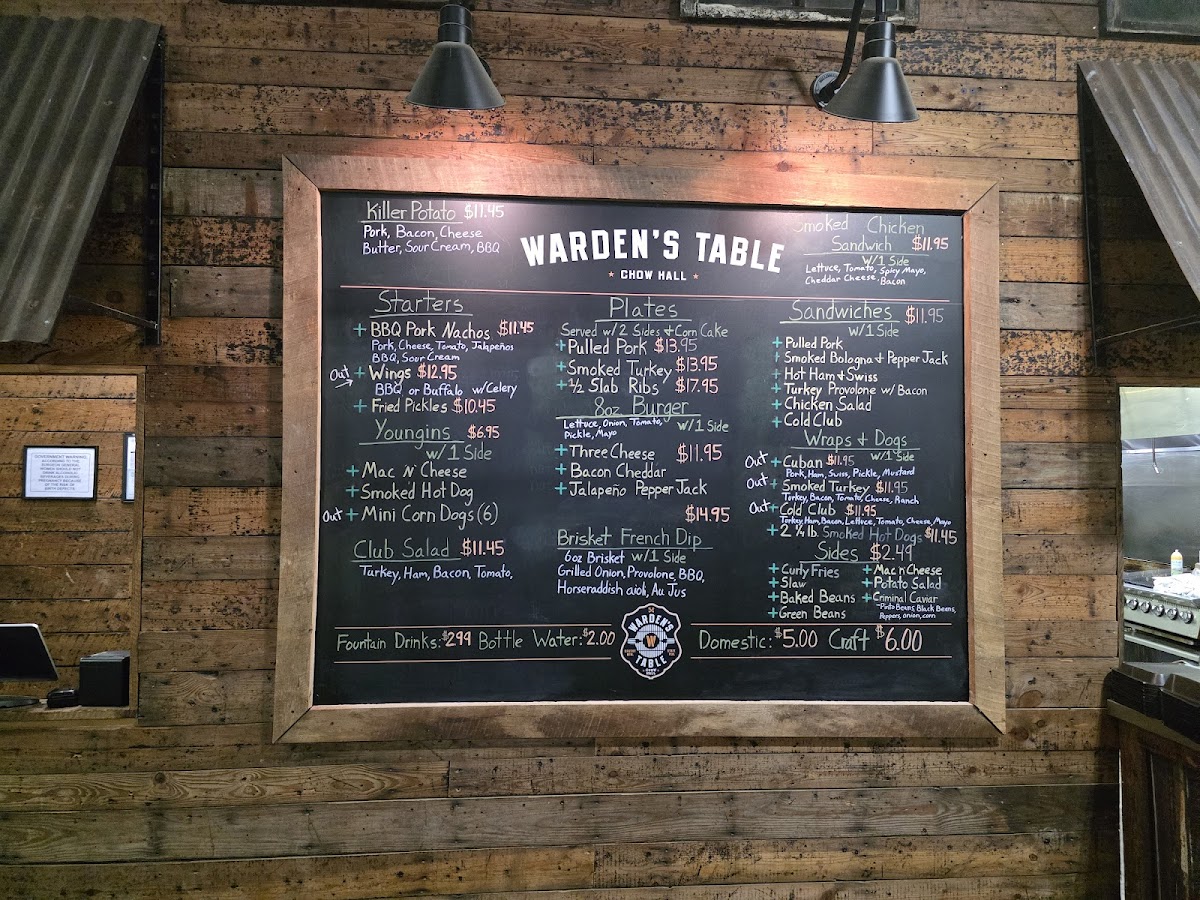 Killer Potato $11.45
Pork, Bacon, Cheese
Butter, Sour Cream, BBQ
WARDEN'S TABLE
CHOW HALL
Smoked Chicken
Sandwich $11.95
w/1 Side
Lettuce, Tomato, Spicy Mayo,
Cheddar Cheese, Bacon
Starters
+ BBQ Pork Nachos $11.45
Pork, Cheese, Tomato, Jalapeños
BBQ, Sour Cream
Out + Wings $12.95
BBQ or Buffalo w/Celery
+ Fried Pickles $10.45
Youngins $6.95
w/1 Side
+ Mac N' Cheese
+ Smoked Hot Dog
Out + Mini Corn Dogs (6)
Club Salad $11.45
Turkey, Ham, Bacon, Tomato,
Plates
Served w/2 Sides + Corn Cake
+ Pulled Pork $13.95
+ Smoked Turkey $13.95
+ 1/2 Slab Ribs $17.95
8oz Burger
Lettuce, Onion, Tomato, w/1 Side
Pickle, Mayo
+ Three Cheese $11.95
+ Bacon Cheddar
+ Jalapeño Pepper Jack
$14.95
Brisket French Dip
6oz Brisket w/1 Side
Grilled Onion, Provolone, BBQ,
Horseraddish aioli, Au Jus
Sandwiches $11.95
w/1 Side
+ Pulled Pork
+ Smoked Bologna + Pepper Jack
+ Hot Ham + Swiss
+ Turkey Provolone w/ Bacon
+ Chicken Salad
+ Cold Club
Wraps + Dogs
w/1 Side
Out + Cuban $11.95
Pork, Ham, Swiss, Pickle, Mustard
Out + Smoked Turkey $11.95
Turkey, Bacon, Tomato, Cheese, Ranch
Out + Cold Club $11.95
Turkey, Ham, Bacon, Lettuce, Tomato, Cheese, Mayo
+ 2 1/4 lb. Smoked Hot Dogs $11.45
Sides $2.49
+ Curly Fries + Mac n Cheese
+ Slaw + Potato Salad
+ Baked Beans + Criminal Caviar
+ Green Beans ~Pinto Beans, Black Beans,
Peppers, onion, corn
Fountain Drinks: $2.99 Bottle Water: $2.00
WARDEN'S
W
TABLE
CHOW
HALL
Domestic: $5.00 Craft $6.00
GOVERNMENT WARNING: